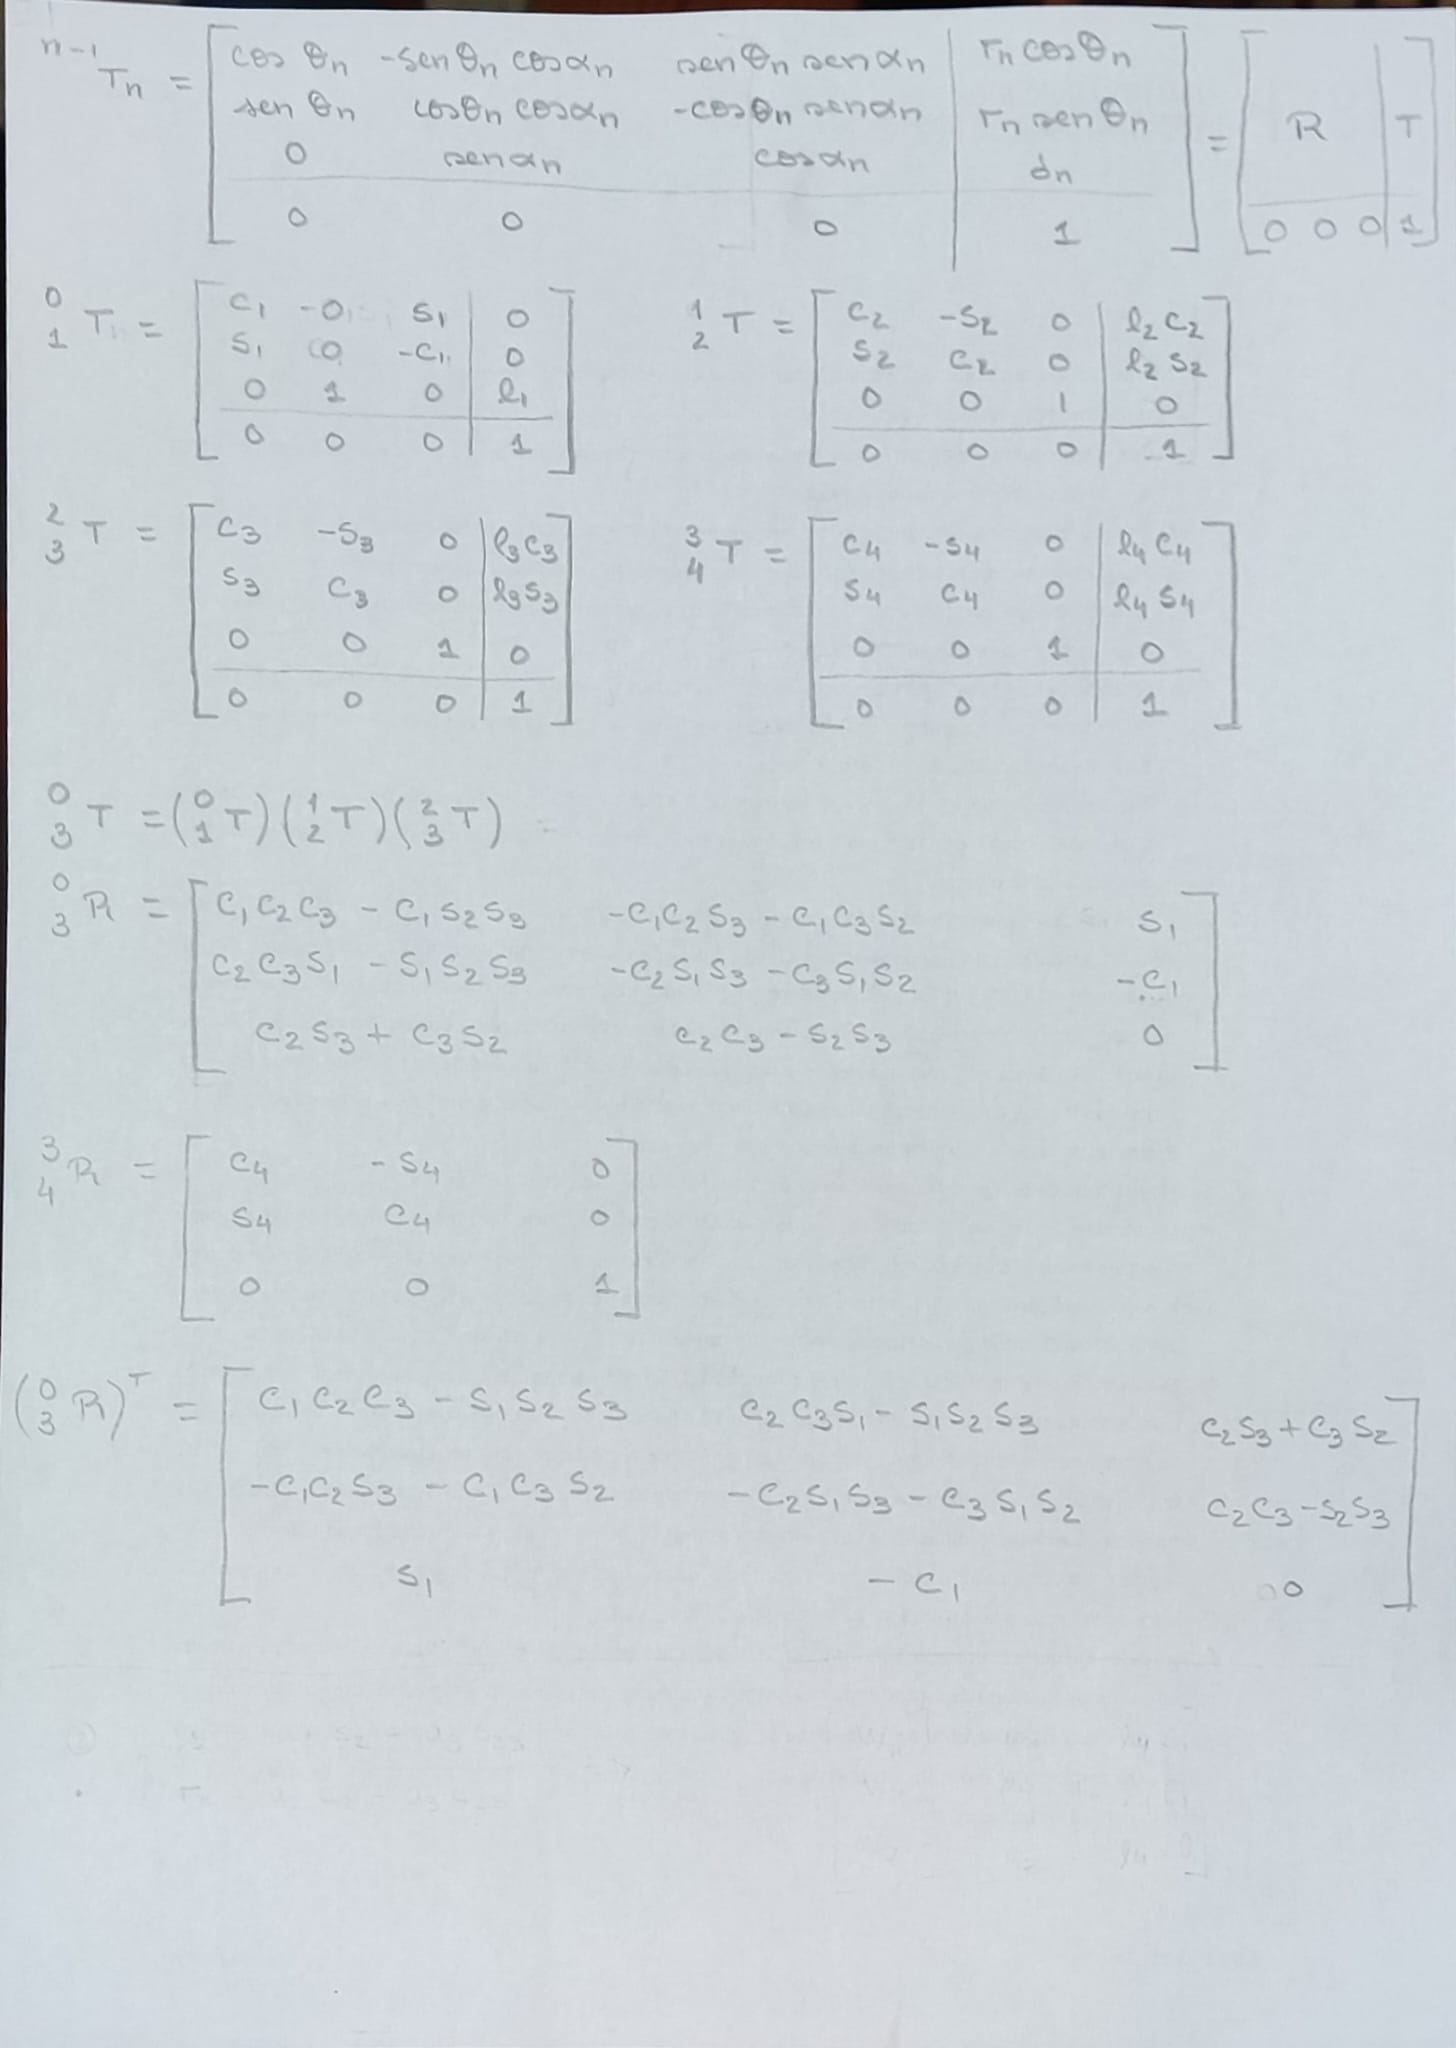 n-1 Tn = [ cos θn -sen θn cos αn sen θn sen αn | rn cos θn ] = [ R | T ]
sen θn cos θn cos αn -cos θn sen αn | rn sen θn
0 sen αn cos αn | dn
0 0 0 | 1 0 0 0 | 1
0 1 T = [ C1 -0 S1 | 0 ] 1 2 T = [ C2 -S2 0 | l2 C2 ]
S1 0 -C1 | 0 S2 C2 0 | l2 S2
0 1 0 | l1 0 0 1 | 0
0 0 0 | 1 0 0 0 | 1
2 3 T = [ C3 -S3 0 | l3 C3 ] 3 4 T = [ C4 -S4 0 | l4 C4 ]
S3 C3 0 | l3 S3 S4 C4 0 | l4 S4
0 0 1 | 0 0 0 1 | 0
0 0 0 | 1 0 0 0 | 1
0 3 T = (0 1 T) (1 2 T) (2 3 T)
0 3 R = [ C1 C2 C3 - C1 S2 S3 -C1 C2 S3 - C1 C3 S2 S1 ]
C2 C3 S1 - S1 S2 S3 -C2 S1 S3 - C3 S1 S2 -C1
C2 S3 + C3 S2 C2 C3 - S2 S3 0
3 4 R = [ C4 -S4 0 ]
S4 C4 0
0 0 1
(0 3 R)^T = [ C1 C2 C3 - S1 S2 S3 C2 C3 S1 - S1 S2 S3 C2 S3 + C3 S2 ]
-C1 C2 S3 - C1 C3 S2 -C2 S1 S3 - C3 S1 S2 C2 C3 - S2 S3
S1 -C1 0